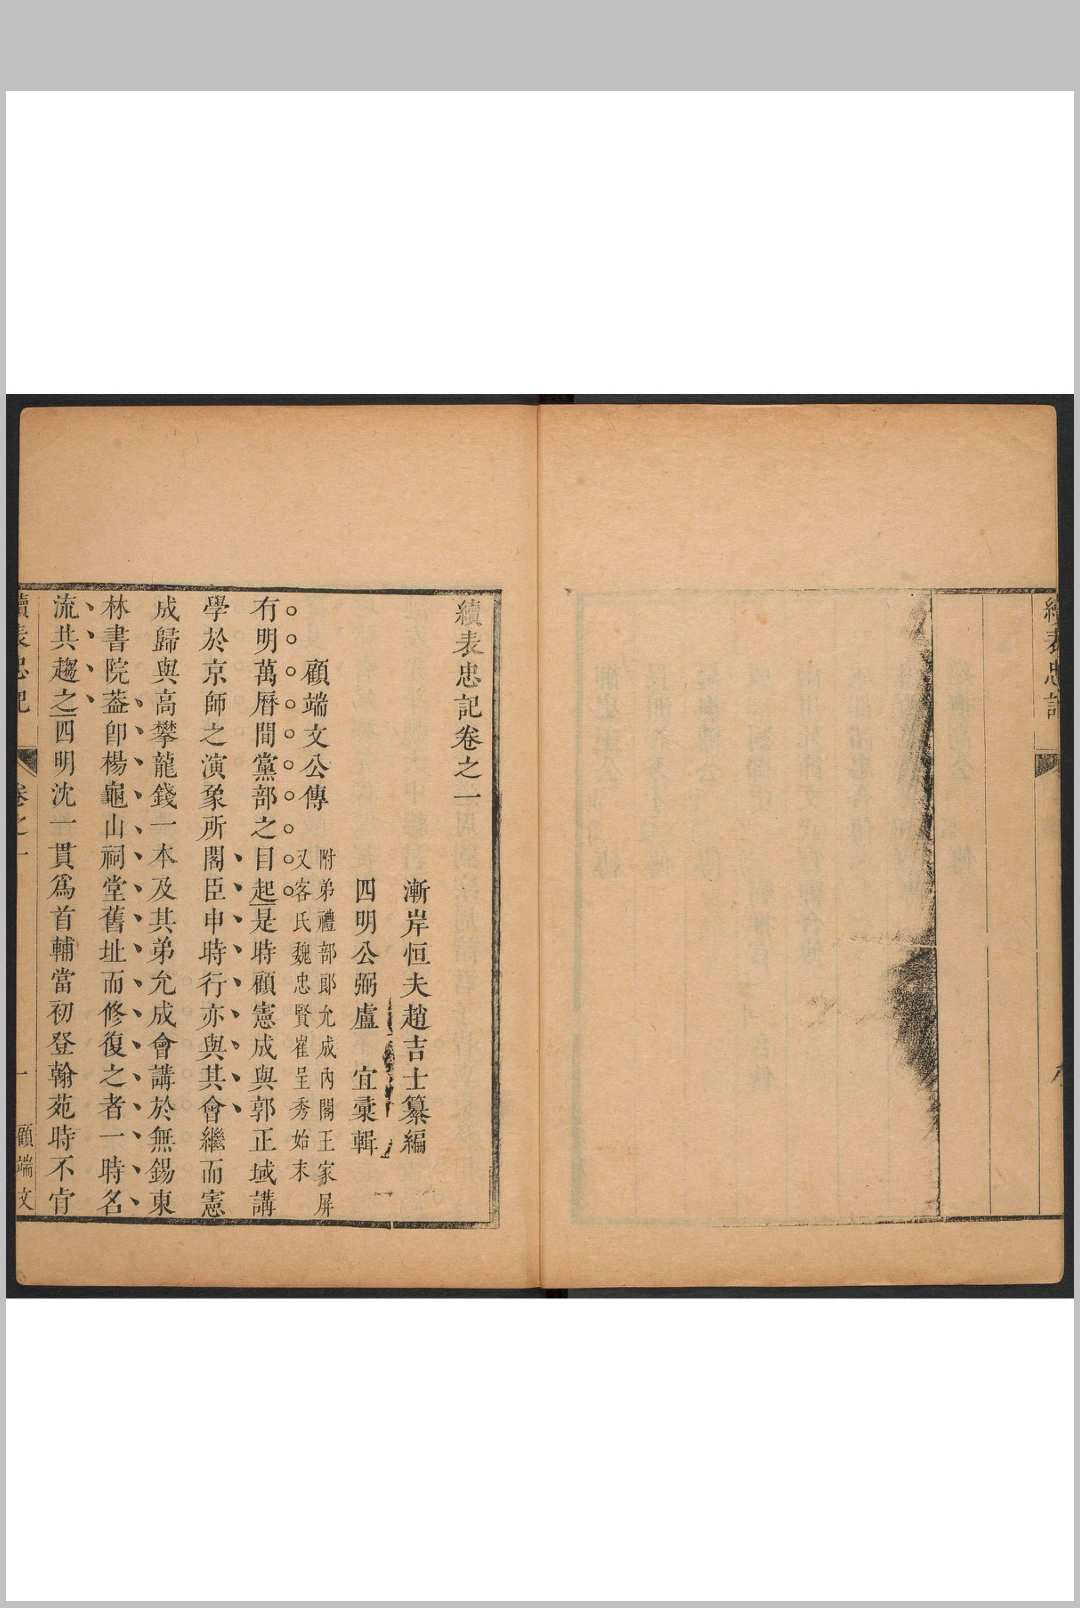 續表忠記
續表忠記卷之一
漸岸恒夫趙吉士纂編
四明公弼盧 宜彙輯
顧端文公傳 附弟禮部郎允成內閣王家屏
又客氏魏忠賢崔呈秀始末
有明萬曆間黨部之目起是時顧憲成與郭正域講
學於京師之演象所閣臣申時行亦與其會繼而憲
成歸與高攀龍錢一本及其弟允成會講於無錫東
林書院葢卽楊龜山祠堂舊址而修復之者一時名
流共趨之四明沈一貫爲首輔當初登翰苑時不肯
續表忠記 卷之一 一 顧端文